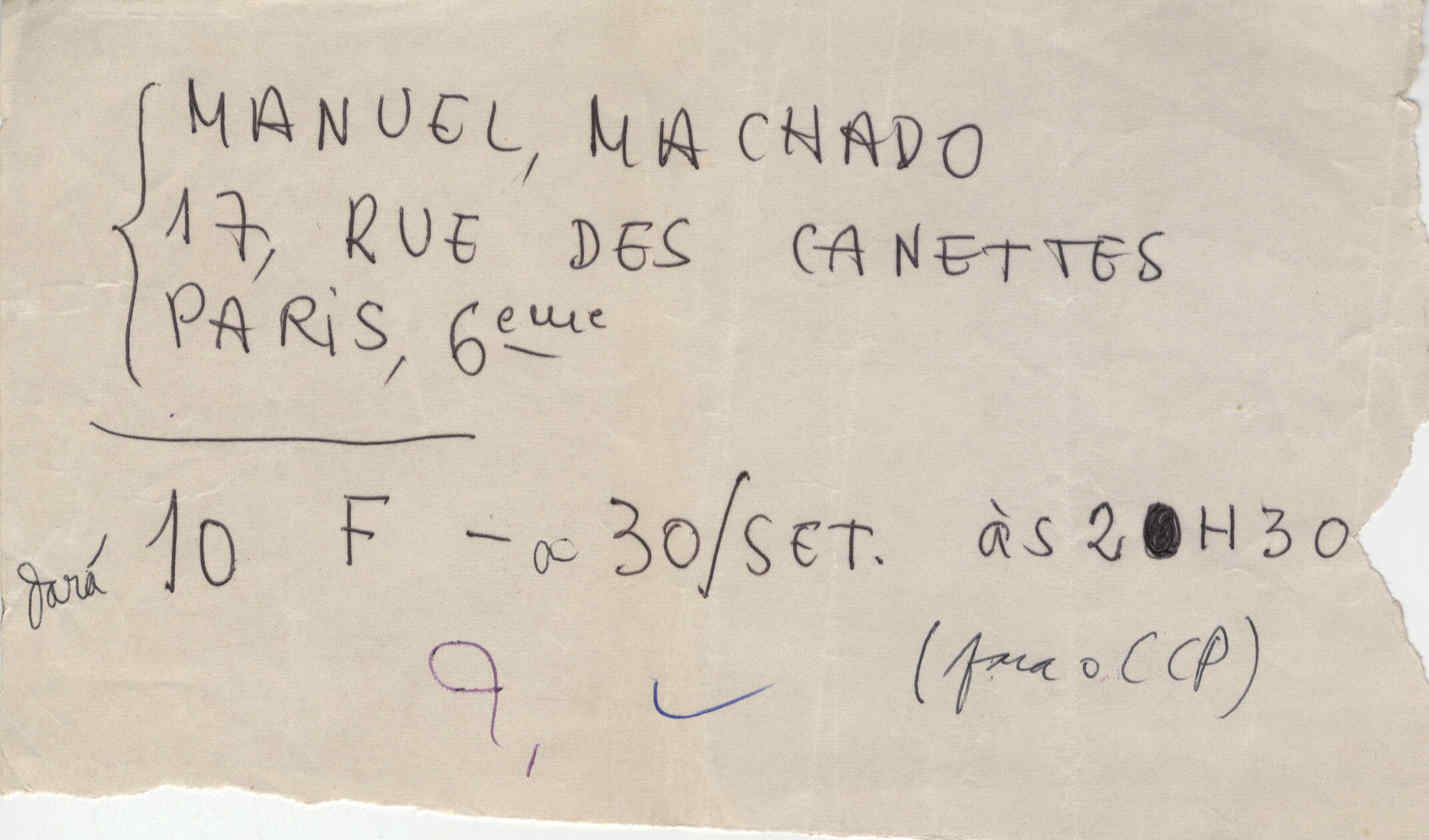 MANUEL, MACHADO
17, RUE DES CANETTES
PARIS, 6eme
dará 10 F - 30/SET. às 20H30
(para o CCP)
9,